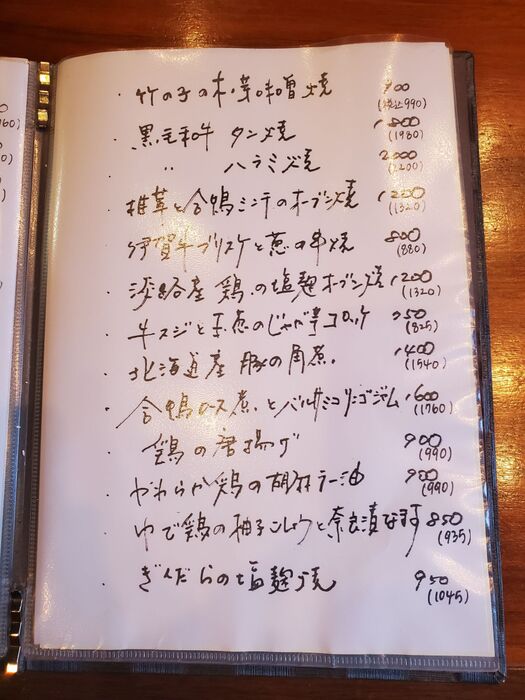 ・竹の子の木の芽味噌焼 900
(税込990)
・黒毛和牛 タン焼 1800
(1980)
〃 ハラミ焼 2000
(2200)
・椎茸と合鴨ミンチのオーブン焼 1200
(1320)
・伊賀牛ブリスケと葱の串焼 800
(880)
・淡路産鶏の塩麹オーブン焼 1200
(1320)
・牛スジと玉葱のじゃが芋コロッケ 750
(825)
・北海道産 豚の角煮. 1400
(1540)
・合鴨ロース煮.とバルサミコリンゴジャム 1600
(1760)
・鶏の唐揚げ 900
(990)
・やわらか鶏の胡麻ラー油 900
(990)
・ゆで鶏の柚子こしょうと奈良漬なます 850
(935)
・ぎんだらの塩麹焼 950
(1045)